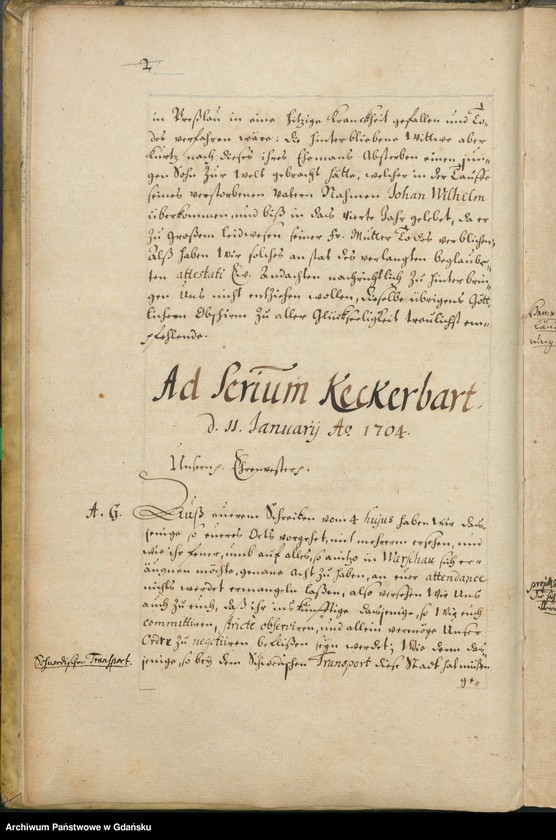 2
in Preßlau in eine hitzige Kranckheit gefallen und To-
des verfahren wäre; die hinterbliebene Wittwe aber
kurtz nach dieses ihres Ehemans Absterben einen jun-
gen Sohn zur Welt gebracht hätte, welcher in der Tauffe
seines verstorbenen Vatern Nahmen Johan Wilhelm
überkommen, und biß in das vierte Jahr gelebet, da er
zu großem Leidwesen seiner Fr. Mutter Todes verblichen;
Alß haben Wir solches an stat des verlangten beglaube-
ten attestati Ew. Andachten nachrichtlich zu hinterbrin-
gen Uns nicht entziehen wollen, dieselbe übrigens Gött-
lichem Obschirm zu aller Glückseeligkeit treulichst em-
pfehlende.
Ad Scrium Keckerbart.
d. 11. Januarij Ao 1704.
Unserm. Ehrenvesten.
A. H.
Auß euerem Schreiben vom 4 hujus haben Wir das-
jenige so eueres Orts vorgehet, mit mehrem ersehen, und
wie ihr ferner, umb auf alles, so anitzo in Warschau sich er-
äugnen möchte, genaue acht zu haben, an euer attendance
nichts werdet ermangeln laßen, also versehen Wir Uns
auch zu euch, daß ihr ins künfftige dasjenige, so Wir euch
committiren, stricte observiren, und allein vermöge Unser
Ordre zu negotiiren beflißen seyn werdet; Wie denn das-
Schwedischer Transport.
jenige, so bey dem Schwedischen Transport diese Stadt hat müßen
ge-
Archiwum Państwowe w Gdańsku